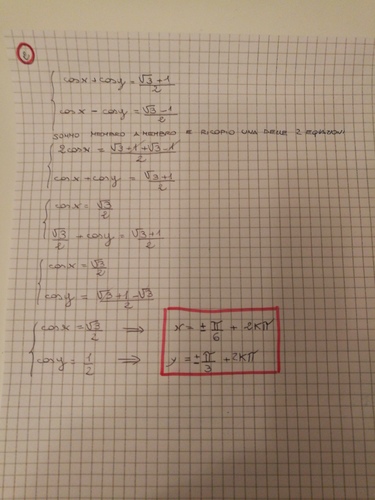 2
cosx + cosy = √3+1/2
cosx − cosy = √3−1/2
SOMMO MEMBRO A MEMBRO E RISCRIVO UNA DELLE 2 EQUAZIONI
2cosx = √3+1+√3−1/2
cosx + cosy = √3+1/2
cosx = √3/2
√3/2 + cosy = √3+1/2
cosx = √3/2
cosy = √3+1−√3/2
cosx = √3/2 ⟹ x = ± π/6 + 2Kπ
cosy = 1/2 ⟹ y = ± π/3 + 2Kπ